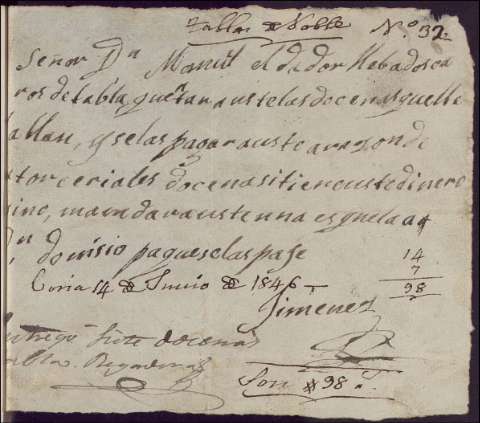 Tablas de Roble Nº 32.
Señor Dn Man.l el dador lleba dos ca
ros de tabla, quetara uste las docenas que lle
allan, y se las pagara uste a razon de
torce riales docena si tiene uste dinero
sino, mandara uste una esquela a
Dn Donisio pa que se las page
14
7
Coria 14 de Junio de 1846
98
Jimenez
Entregó siete docenas
tabla.
Son $ 98